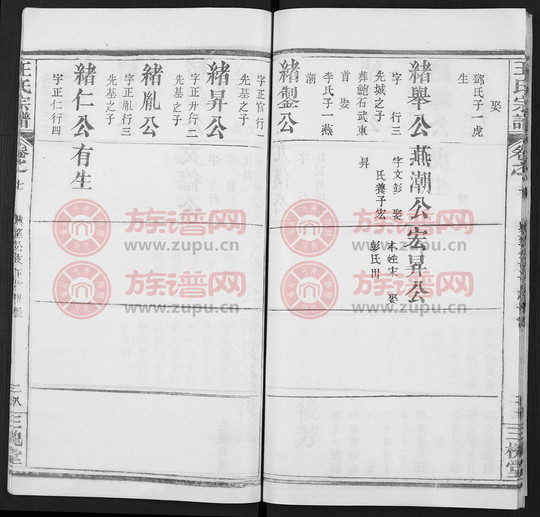 王氏宗譜
卷之
三槐堂
娶
鄧氏子一虎
生
緒舉公
字 行三
先城之子
葬鮑石武東
首 娶
李氏子一燕
潮
燕潮公
字文彭 娶
氏養子宏
昇
宏昇公
本姓宋 娶
彭氏
緒製公
字正官行一
先基之子
緒昇公
字正升行二
先基之子
緒胤公
字正胤行三
先基之子
緒仁公
字正仁行四
有生
王氏宗譜
卷之
七
二八
三槐堂
族谱网
www.zupu.cn
族谱网
www.zupu.cn
族谱网
www.zupu.cn
族谱网
www.zupu.cn